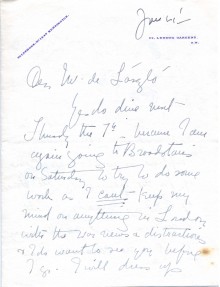 Dear Mr. de László
Yes do dine next
Thursday the 7th because I am
again going to Broadstairs
on Saturday to try to do some
work as I can't keep my
mind on anything in London
with the war news & distractions
& I do want to see you before
I go. I will dress up